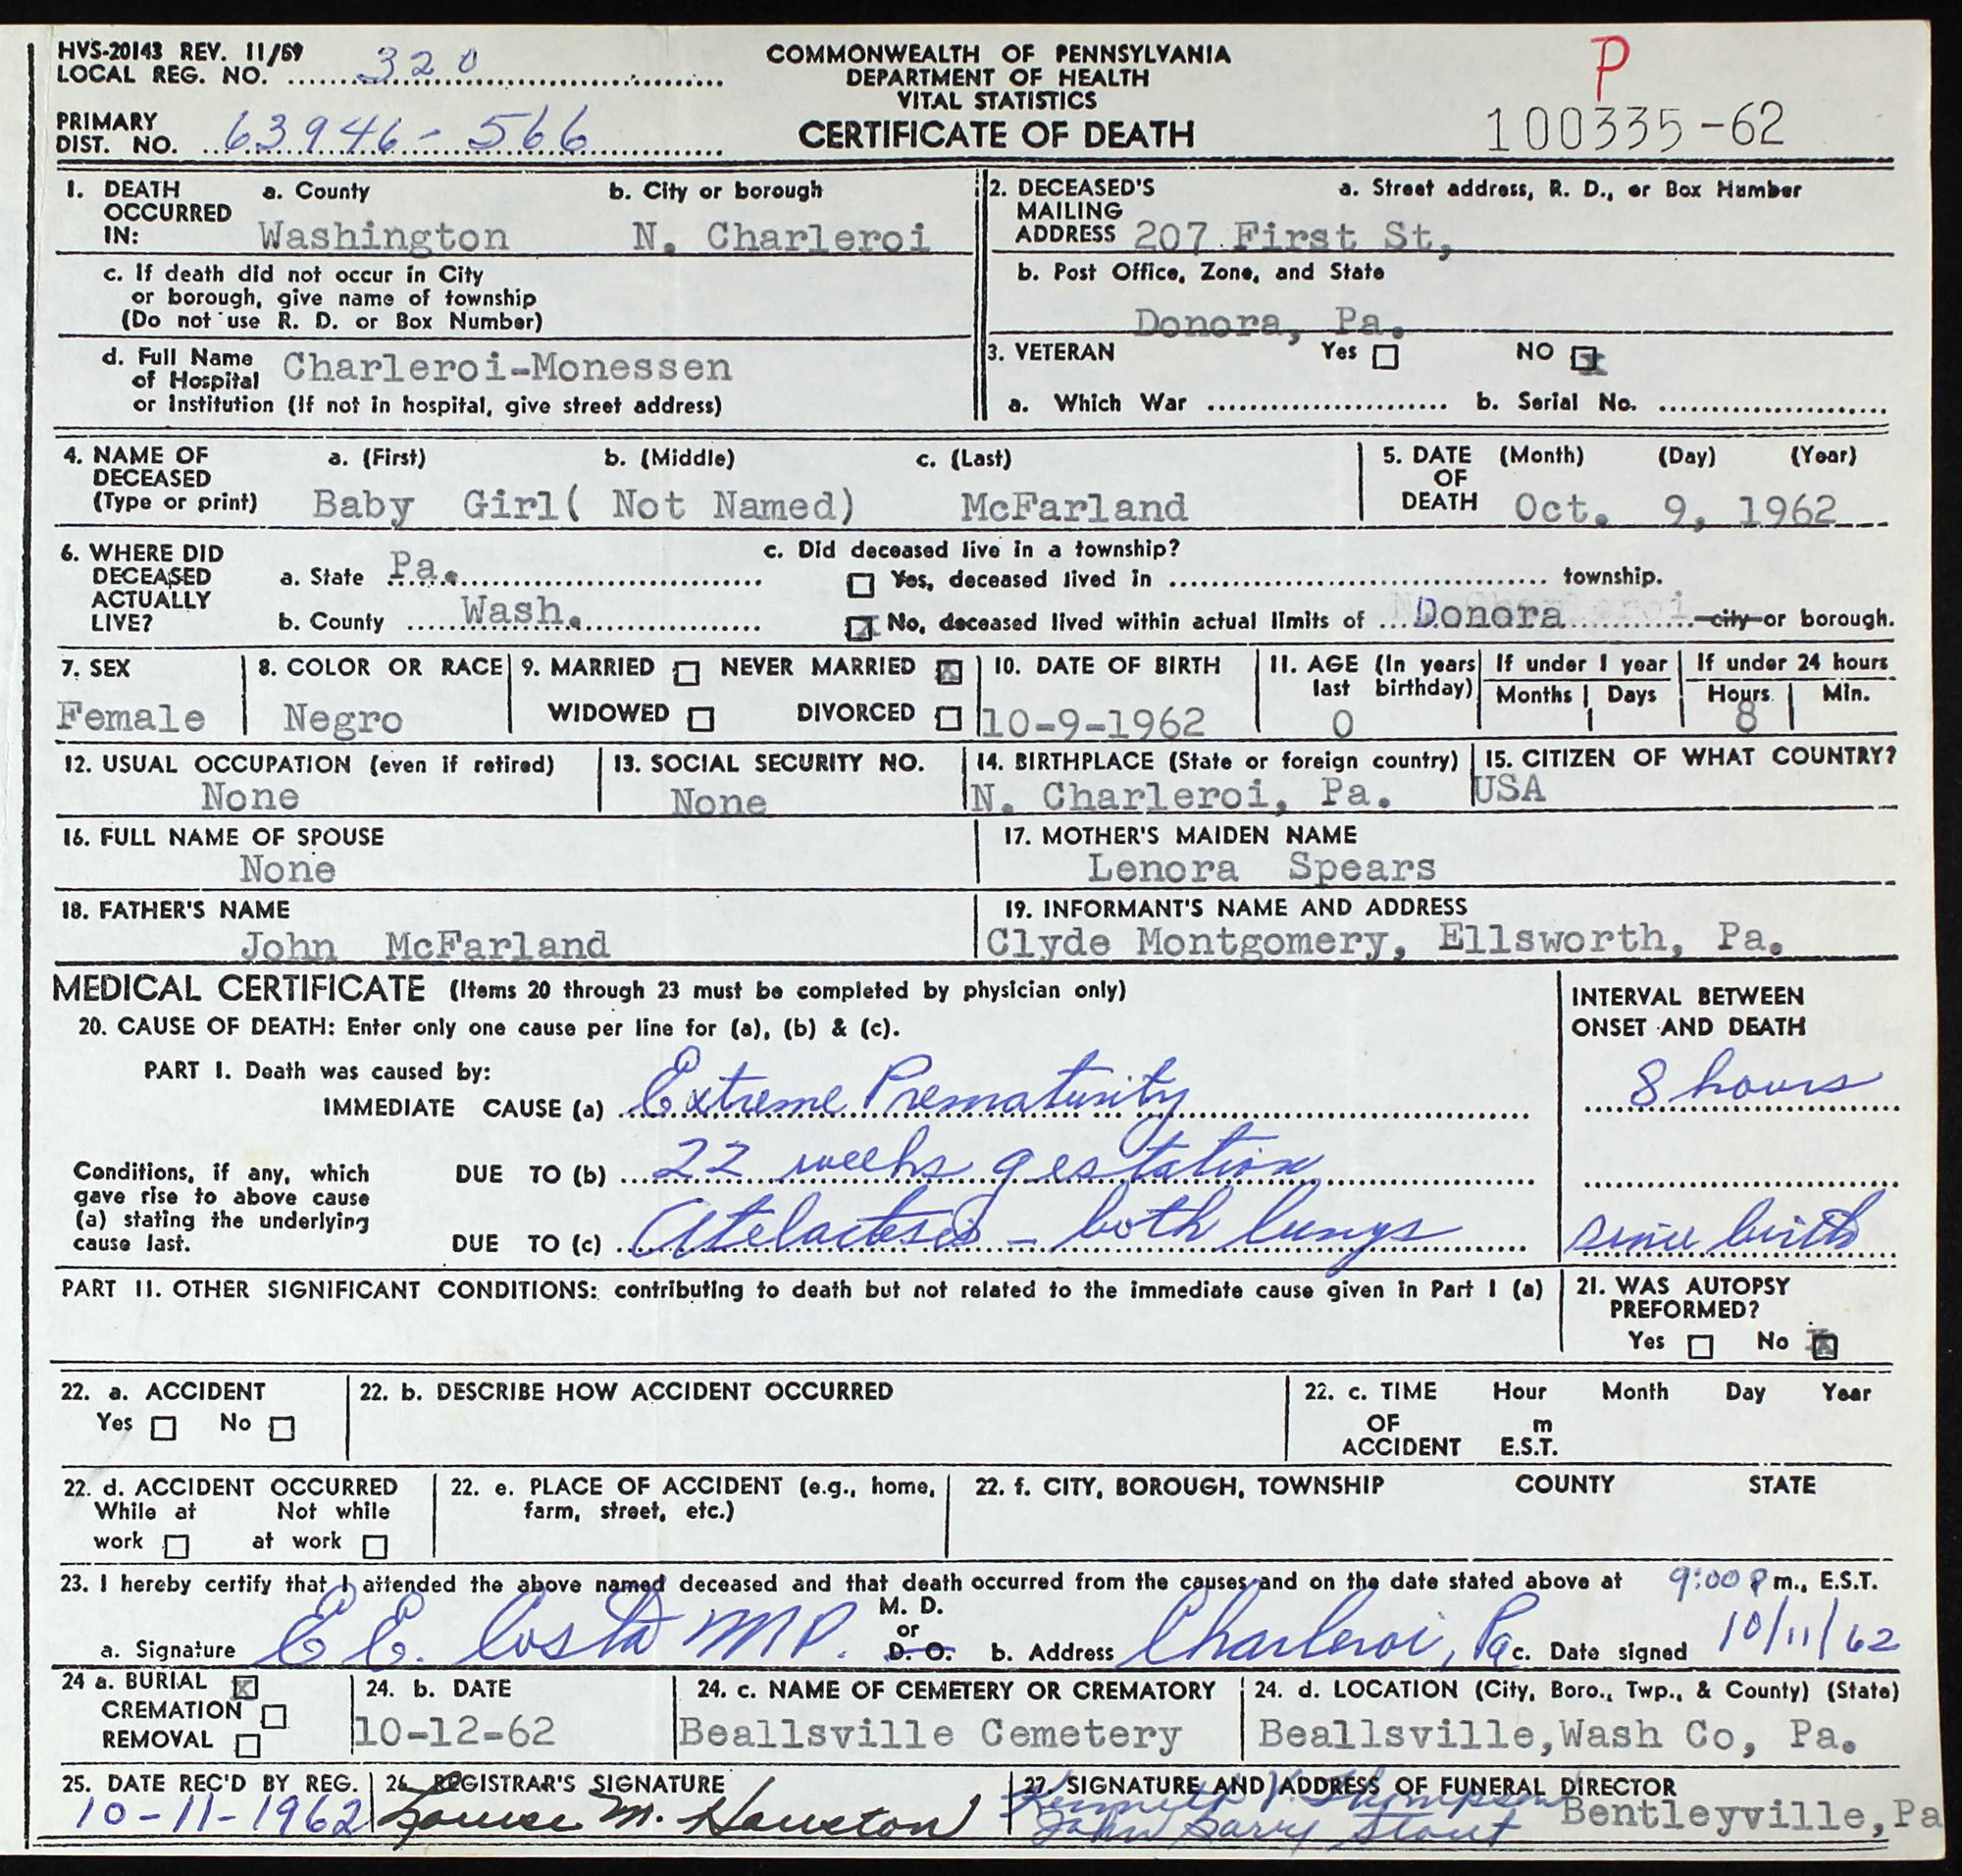 HVS-20143 REV. 11/59
LOCAL REG. NO. 320
PRIMARY DIST. NO. 63946-566
COMMONWEALTH OF PENNSYLVANIA
DEPARTMENT OF HEALTH
VITAL STATISTICS
CERTIFICATE OF DEATH
P
100335-62
1. DEATH OCCURRED IN: a. County b. City or borough
Washington N. Charleroi
c. If death did not occur in City
or borough, give name of township
(Do not use R. D. or Box Number)
d. Full Name of Hospital Charleroi-Monessen
or Institution (If not in hospital, give street address)
2. DECEASED'S MAILING ADDRESS a. Street address, R. D., or Box Number
207 First St,
b. Post Office, Zone, and State
Donora, Pa.
3. VETERAN Yes NO x
a. Which War b. Serial No.
4. NAME OF DECEASED (Type or print) a. (First) b. (Middle) c. (Last)
Baby Girl( Not Named) McFarland
5. DATE OF DEATH (Month) (Day) (Year)
Oct. 9, 1962
6. WHERE DID DECEASED ACTUALLY LIVE?
a. State Pa.
b. County Wash.
c. Did deceased live in a township?
Yes, deceased lived in township.
x No, deceased lived within actual limits of Donora city or borough.
7. SEX
Female
8. COLOR OR RACE
Negro
9. MARRIED NEVER MARRIED x
WIDOWED DIVORCED
10. DATE OF BIRTH
10-9-1962
11. AGE (In years last birthday)
0
If under 1 year
Months Days
If under 24 hours
Hours Min.
8
12. USUAL OCCUPATION (even if retired)
None
13. SOCIAL SECURITY NO.
None
14. BIRTHPLACE (State or foreign country)
N. Charleroi, Pa.
15. CITIZEN OF WHAT COUNTRY?
USA
16. FULL NAME OF SPOUSE
None
17. MOTHER'S MAIDEN NAME
Lenora Spears
18. FATHER'S NAME
John McFarland
19. INFORMANT'S NAME AND ADDRESS
Clyde Montgomery, Ellsworth, Pa.
MEDICAL CERTIFICATE (Items 20 through 23 must be completed by physician only)
20. CAUSE OF DEATH: Enter only one cause per line for (a), (b) & (c).
INTERVAL BETWEEN
ONSET AND DEATH
PART I. Death was caused by:
IMMEDIATE CAUSE (a) Extreme Prematurity 8 hours
Conditions, if any, which
gave rise to above cause
(a) stating the underlying
cause last.
DUE TO (b) 22 weeks gestation
DUE TO (c) Atelactesis - both lungs since birth
PART II. OTHER SIGNIFICANT CONDITIONS: contributing to death but not related to the immediate cause given in Part I (a)
21. WAS AUTOPSY
PREFORMED?
Yes No x
22. a. ACCIDENT
Yes No
22. b. DESCRIBE HOW ACCIDENT OCCURRED
22. c. TIME OF ACCIDENT Hour Month Day Year
m
E.S.T.
22. d. ACCIDENT OCCURRED
While at work Not while at work
22. e. PLACE OF ACCIDENT (e.g., home,
farm, street, etc.)
22. f. CITY, BOROUGH, TOWNSHIP COUNTY STATE
23. I hereby certify that I attended the above named deceased and that death occurred from the causes and on the date stated above at 9:00 P m., E.S.T.
a. Signature E E. Costa MD. M. D. or D. O. b. Address Charleroi, Pa c. Date signed 10/11/62
24 a. BURIAL x
CREMATION
REMOVAL
24. b. DATE
10-12-62
24. c. NAME OF CEMETERY OR CREMATORY
Beallsville Cemetery
24. d. LOCATION (City, Boro., Twp., & County) (State)
Beallsville,Wash Co, Pa.
25. DATE REC'D BY REG.
10-11-1962
26. REGISTRAR'S SIGNATURE
Louise M. Houston
27. SIGNATURE AND ADDRESS OF FUNERAL DIRECTOR
Kenneth V. Thompson
John Barry Stout Bentleyville,Pa